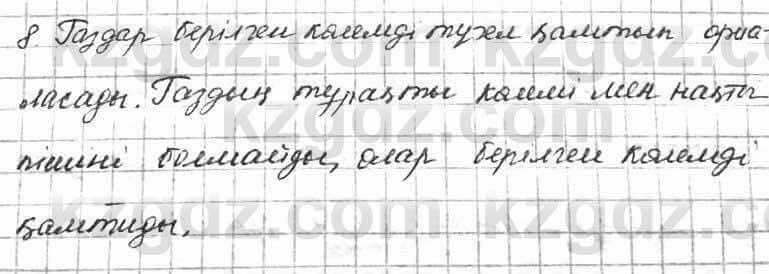 8 Газдар берілген көлемді түгел қамтып орна-
ласады. Газдың тұрақты көлемі мен нақты
пішіні болмайды, олар берілген көлемді
қамтиды.